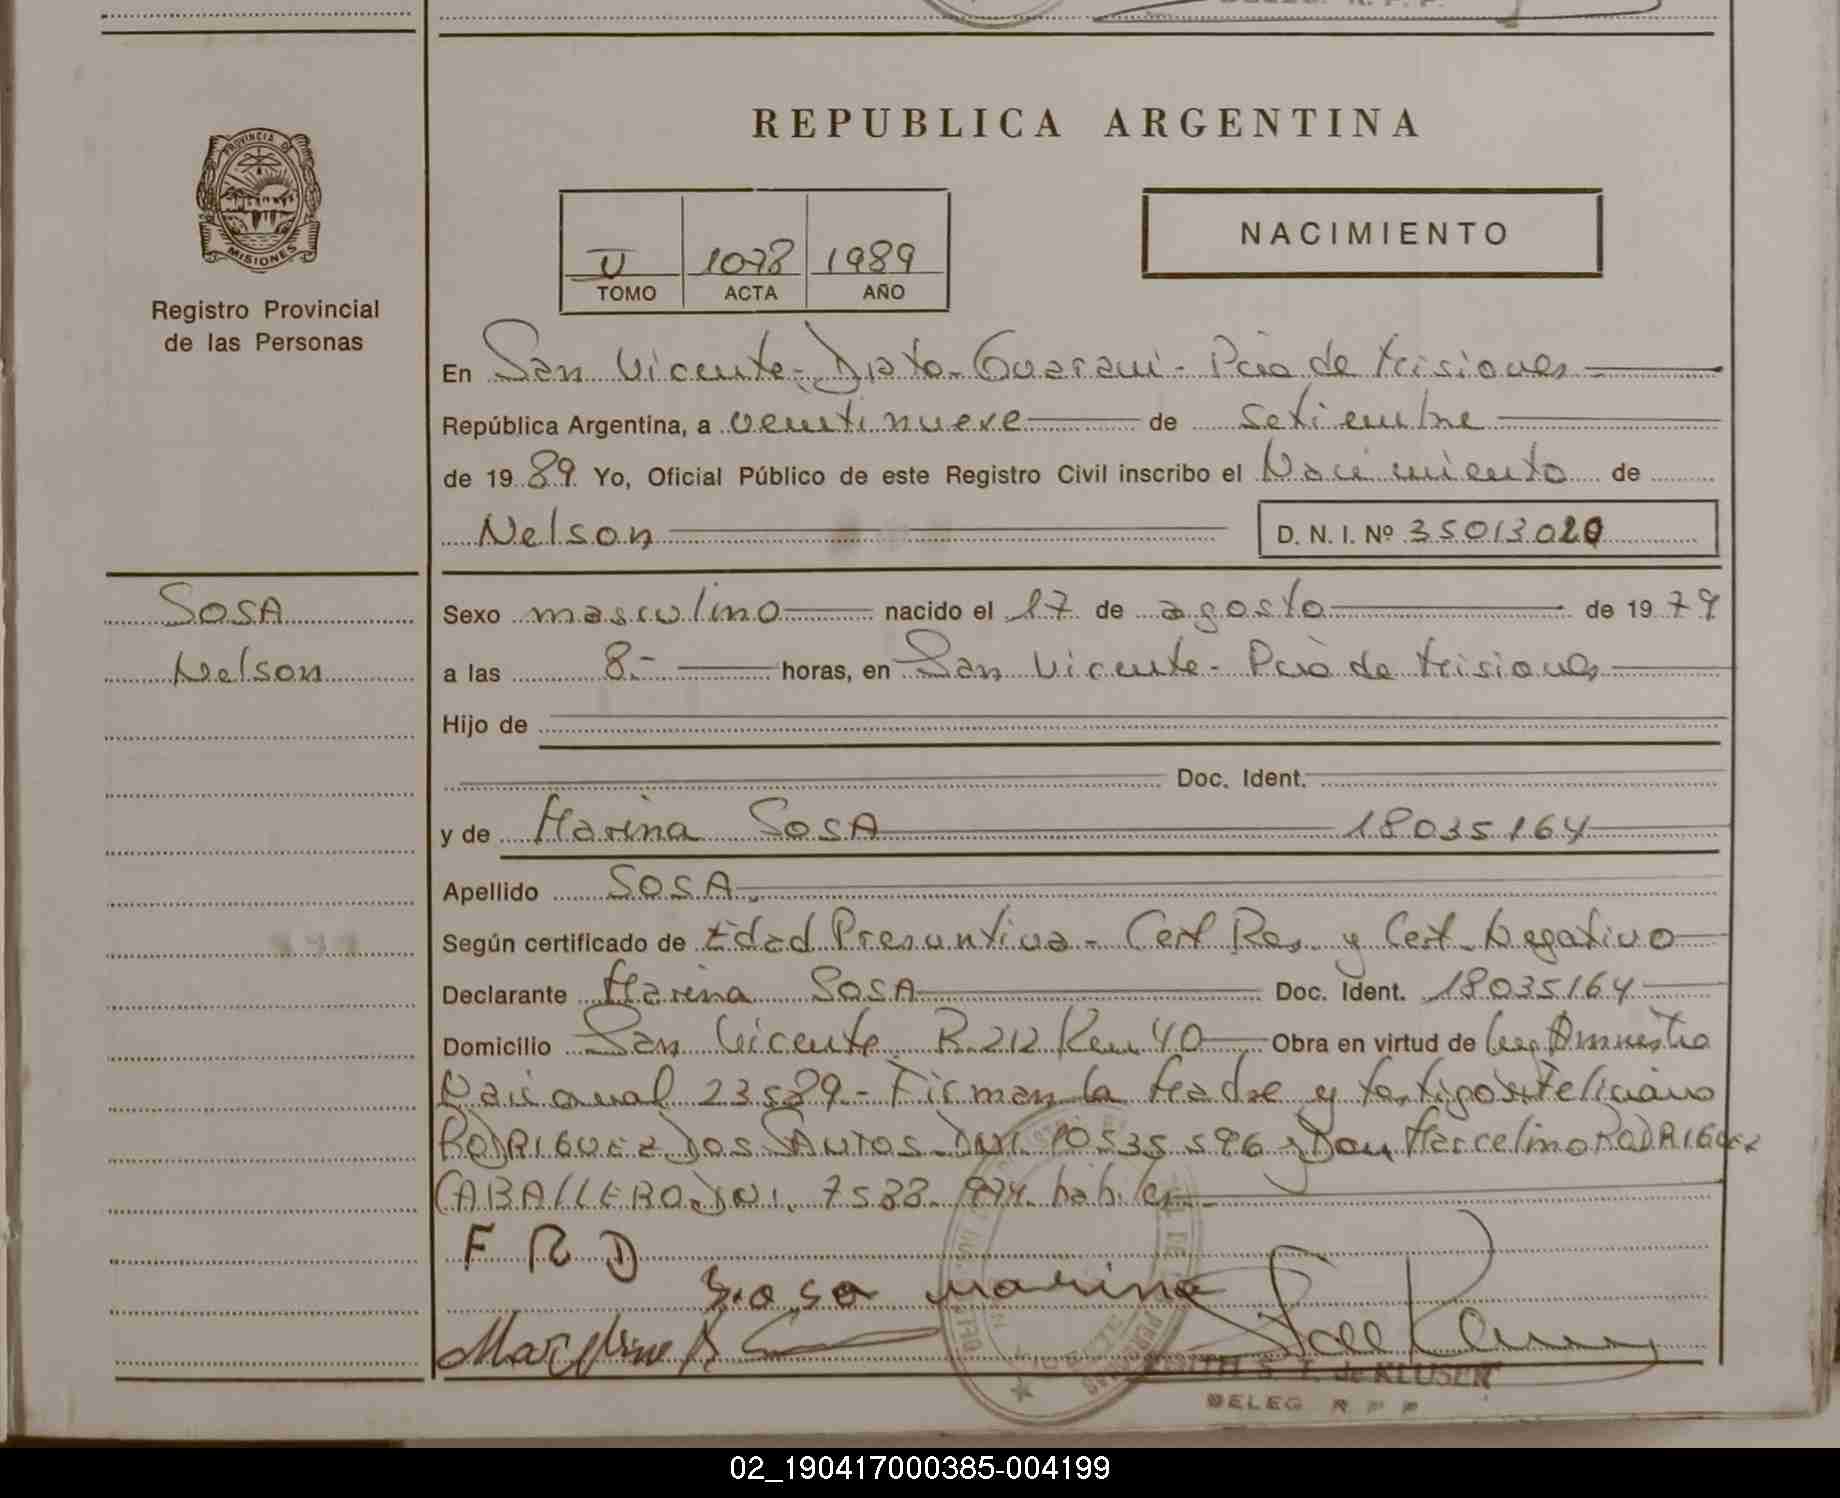 REPUBLICA ARGENTINA
PROVINCIA DE
MISIONES
Registro Provincial
de las Personas
NACIMIENTO
U 1078 1989
TOMO ACTA AÑO
En San Vicente - Dpto - Guaraní - Pcia de Misiones
República Argentina, a veintinueve de setiembre
de 1989 Yo, Oficial Público de este Registro Civil inscribo el Nacimiento de
Nelson D. N. I. Nº 35013020
SOSA
Nelson
Sexo masculino nacido el 17 de agosto de 1979
a las 8.- horas, en San Vicente - Pcia de Misiones
Hijo de
Doc. Ident.
y de Marina SOSA 18035164
Apellido SOSA.
Según certificado de Edad Presuntiva - Cert Res. y Cert. Negativo
Declarante Marina SOSA Doc. Ident. 18035164
Domicilio San Vicente R.212 Km 40 Obra en virtud de Ley Amnistia
Nacional 23589 - Firman la Madre y testigos Feliciano
RODRIGUEZ DOS SANTOS - DNI. 10535596 y Don Marcelino RODRIGUEZ
CABALLERO. DNI. 7533.974. habiles -
F R D
Sosa Marina
S. T. de KLUSER
DELEG R P P
02_190417000385-004199